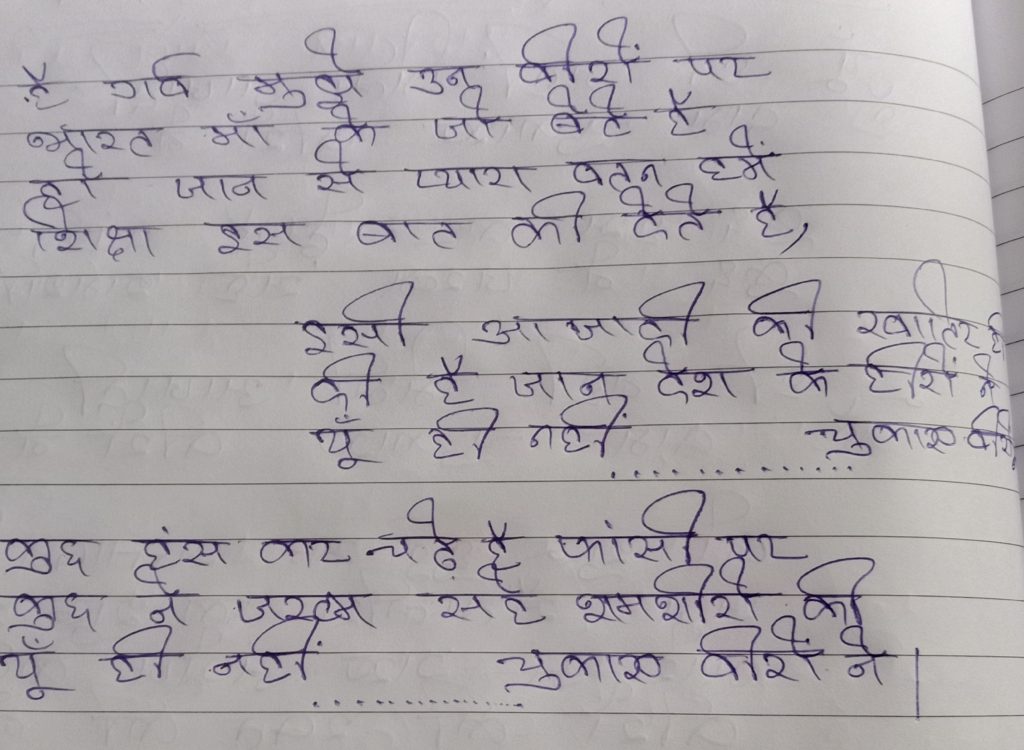 है गर्व मुझे उन वीरों पर
भारत माँ के जो बेटे है
हो जान से प्यारा वतन हमें
शिक्षा इस बात की देते है,
इसी आजादी की खातिर ही
दी है जान देश के हीरों ने
यूँ ही नहीं ............. चुकाए वीरों
कुछ हंस कर चढ़े है फांसी पर
कुछ ने जख्म सहे शमशीरों की
यूँ ही नहीं ............... चुकाए वीरों ने |